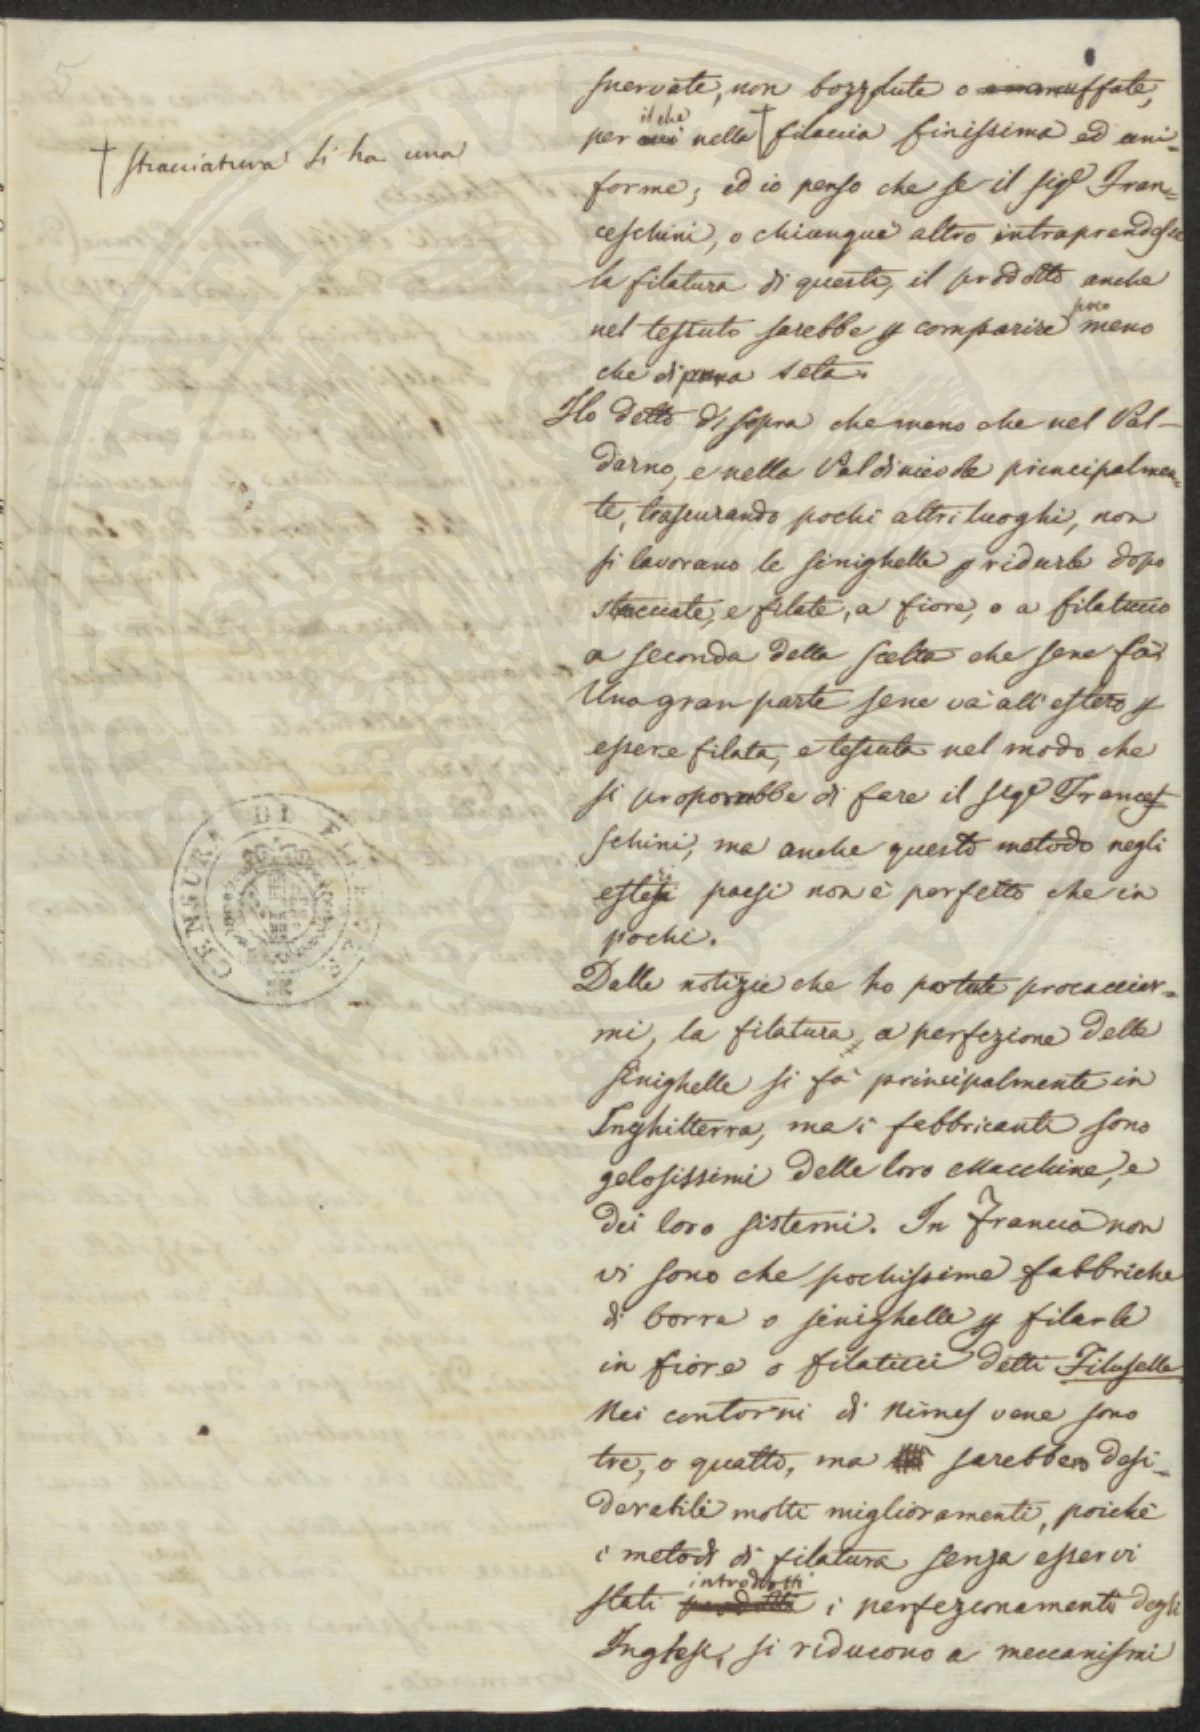 snervate, non bozzolute o ammuffate,
il che
per nella † filaccia finissima ed uni-
† stracciatura si ha una
forme; ed io penso che se il sigr Fran=
ceschini, o chiunque altro intraprendesse
la filatura di queste, il prodotto anche
nel tessuto sarebbe p comparire poco meno
che di pura seta.
Ho detto di sopra che meno che nel Val-
darno, e nella Valdinievole principalmen=
te, trascurando pochi altri luoghi, non
si lavorano le sinighelle p ridurle dopo
stracciate, e filate, a fiore, o a filaticcio
a seconda della scelta che sene fà
Una gran parte sene và all'estero p
essere filata, e tessuta nel modo che
si proporrebbe di fare il sigr France
schini, ma anche questo metodo negli
esteri paesi non è perfetto che in
pochi.
Dalle notizie che ho potute procacciar=
mi, la filatura, a perfezione delle
sinighelle si fà principalmente in
Inghilterra, ma i fabbricanti sono
gelosissimi delle loro Macchine, e
dei loro sistemi. In Francia non
vi sono che pochissime fabbriche
di borra o sinighelle p filarle
in fiore o filaticci detti Filoselle
Nei contorni di Nimes vene sono
tre, o quattro, ma sarebbero desi=
derabili molti miglioramenti, poichè
i metodi di filatura senza esservi
introdotti
stati prodotti i perfezionamenti degli
Inglesi, si riducono a meccanismi
CENSURA DI FIRENZE